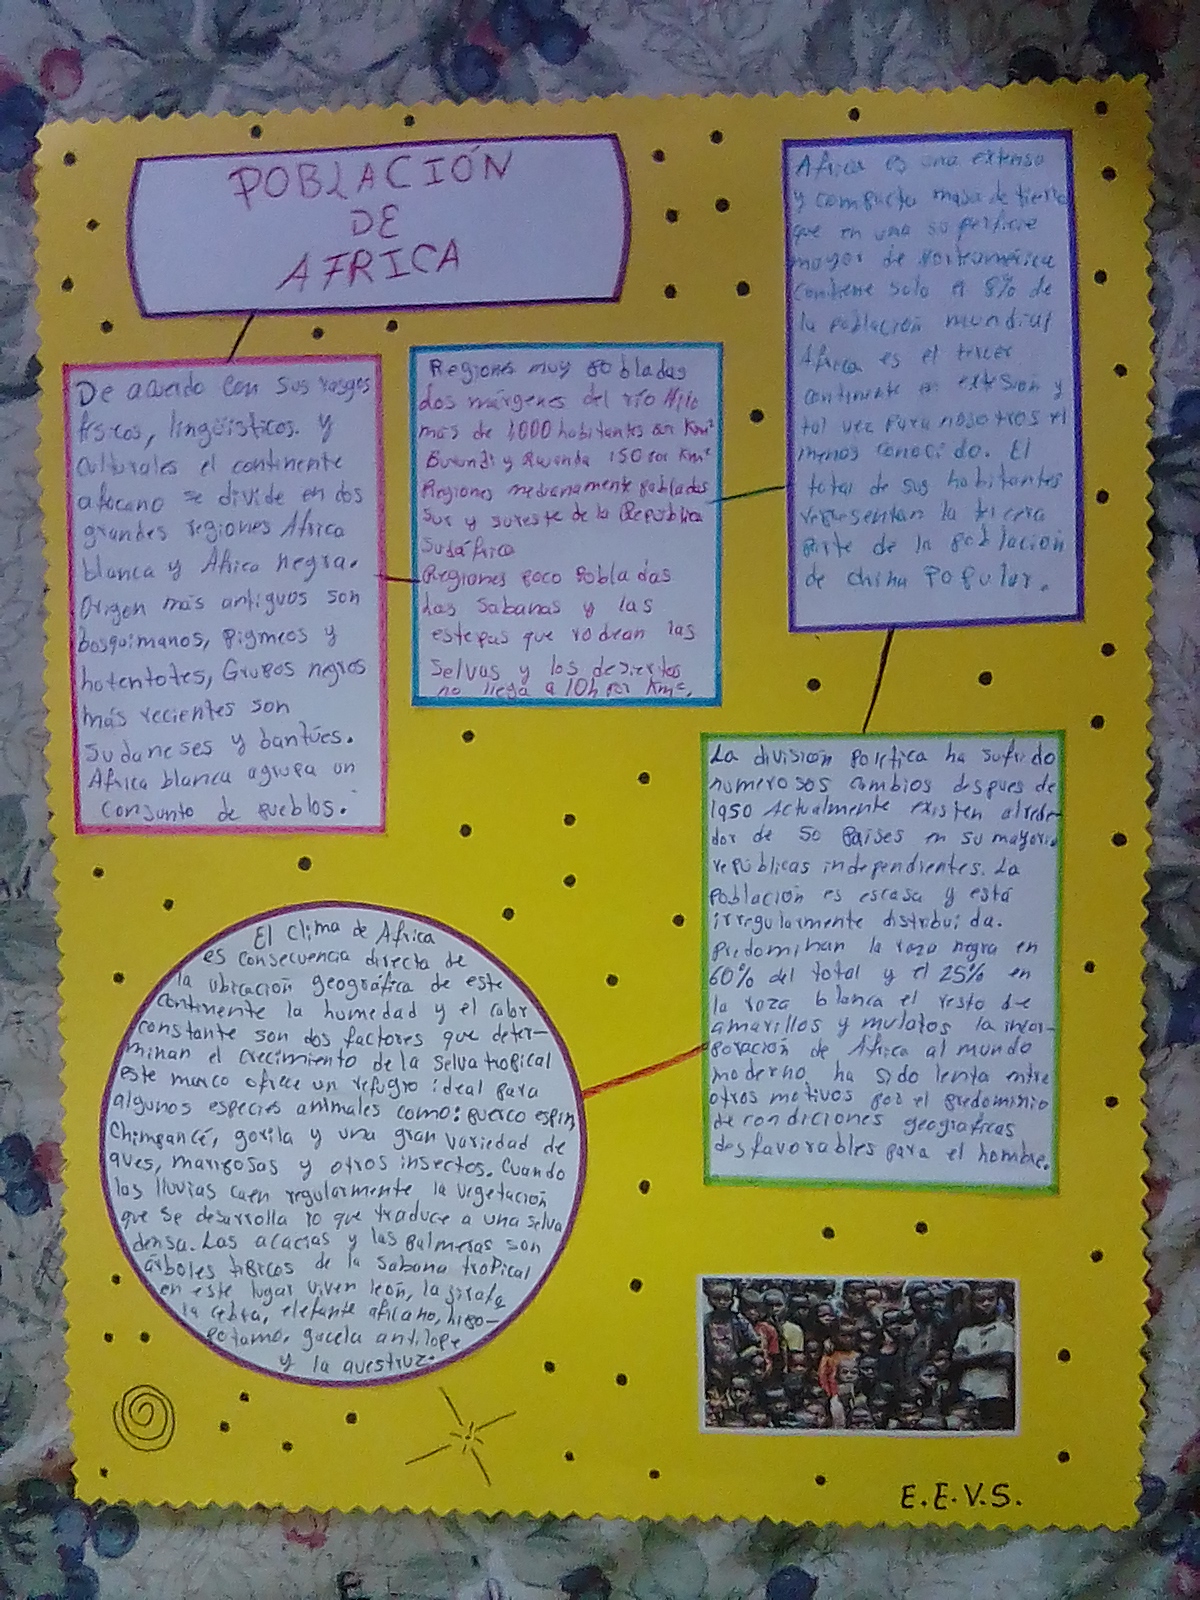 POBLACIÓN
DE
AFRICA
De acuerdo con sus rasgos
físicos, lingüisticos. y
culturales el continente
africano se divide en dos
grandes regiones Africa
blanca y Africa negra.
Origen más antiguos son
bosquimanos, pigmeos y
hotentotes, Grupos negros
más recientes son
Sudaneses y bantúes.
Africa blanca agrupa un
conjunto de pueblos.
Regiones muy pobladas
dos márgenes del río Nilo
más de 1000 habitantes en Km²
Burundi y Rwanda 150 por Km²
Regiones medianamente pobladas
Sur y sureste de la República
Sudáfrica
Regiones poco pobladas
Las Sabanas y las
estepas que rodean las
Selvas y los desiertos
no llega a 10h por Km².
Africa es una extensa
y compacta masa de tierra
que en una superficie
mayor de Norteamérica
contiene solo el 8% de
la población mundial
Africa es el tercer
continente en extesión y
tal vez para nosotros el
menos conocido. El
total de sus habitantes
representan la tercera
parte de la población
de china Popular.
La división política ha sufrido
numerosos cambios despues de
1950 Actualmente existen alrede-
dor de 50 Países en su mayoria
repúblicas independientes. La
Población es escasa y está
irregularmente distribuida.
Predominan la raza negra en
60% del total y el 25% en
la raza blanca el resto de
amarillos y mulatos la incor-
poración de Africa al mundo
moderno ha sido lenta entre
otros motivos por el predominio
de condiciones geograficas
desfavorables para el hombre.
El Clima de Africa
es consecuencia directa de
la ubicación geográfica de este
continente la humedad y el calor
constante son dos factores que deter-
minan el crecimiento de la Selva tropical
este marco ofrece un refugio ideal para
algunos especies animales como: puerco espin,
Chimpancé, gorila y una gran variedad de
aves, mariposas y otros insectos. Cuando
las lluvias caen regularmente la vegetación
que se desarrolla lo que traduce a una selva
densa. Las acacias y las palmeras son
árboles tipicos de la sabana tropical
en este lugar viven león, la jirafa
la cebra, elefante africano, hipo-
potamo, gacela antilope
y la avestruz.
E.E.V.S.